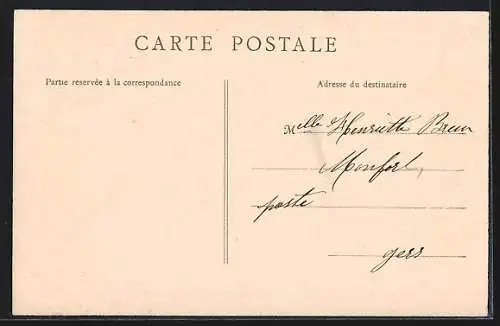 CARTE POSTALE
Partie reservée à la correspondance
Adresse du destinataire
Melle Henriette Brun
Monfort,
poste
gers